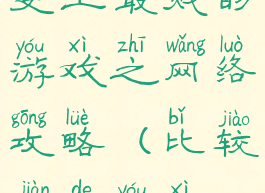 yóu xì zhī wǎng luò
游戏之网络
gōng lüè bǐ jiào
攻略（比较
jiàn de yóu xì